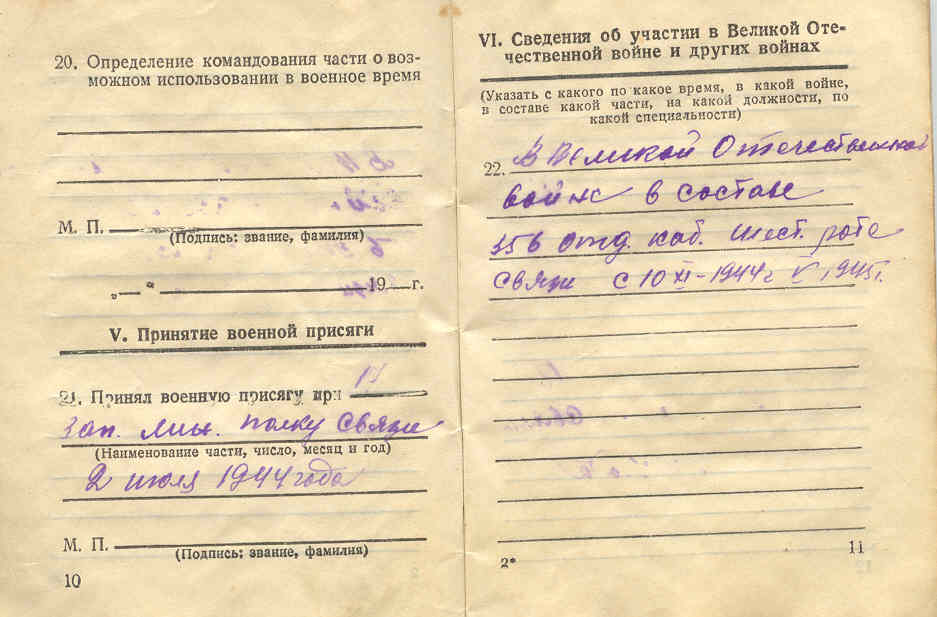 20. Определение командования части о воз-
можном использовании в военное время
М. П.
(Подпись: звание, фамилия)
„ — “ 19 г.
V. Принятие военной присяги
21. Принял военную присягу при
Зап. лин. полку связи
(Наименование части, число, месяц и год)
2 июля 1944 года
М. П.
(Подпись: звание, фамилия)
10
VI. Сведения об участии в Великой Оте-
чественной войне и других войнах
(Указать с какого по какое время, в какой войне,
в составе какой части, на какой должности, по
какой специальности)
22. В Великой Отечественной
войне в составе
556 отд. каб. шест. роте
связи с 10 XI-1944г V 1945г.
2*
11